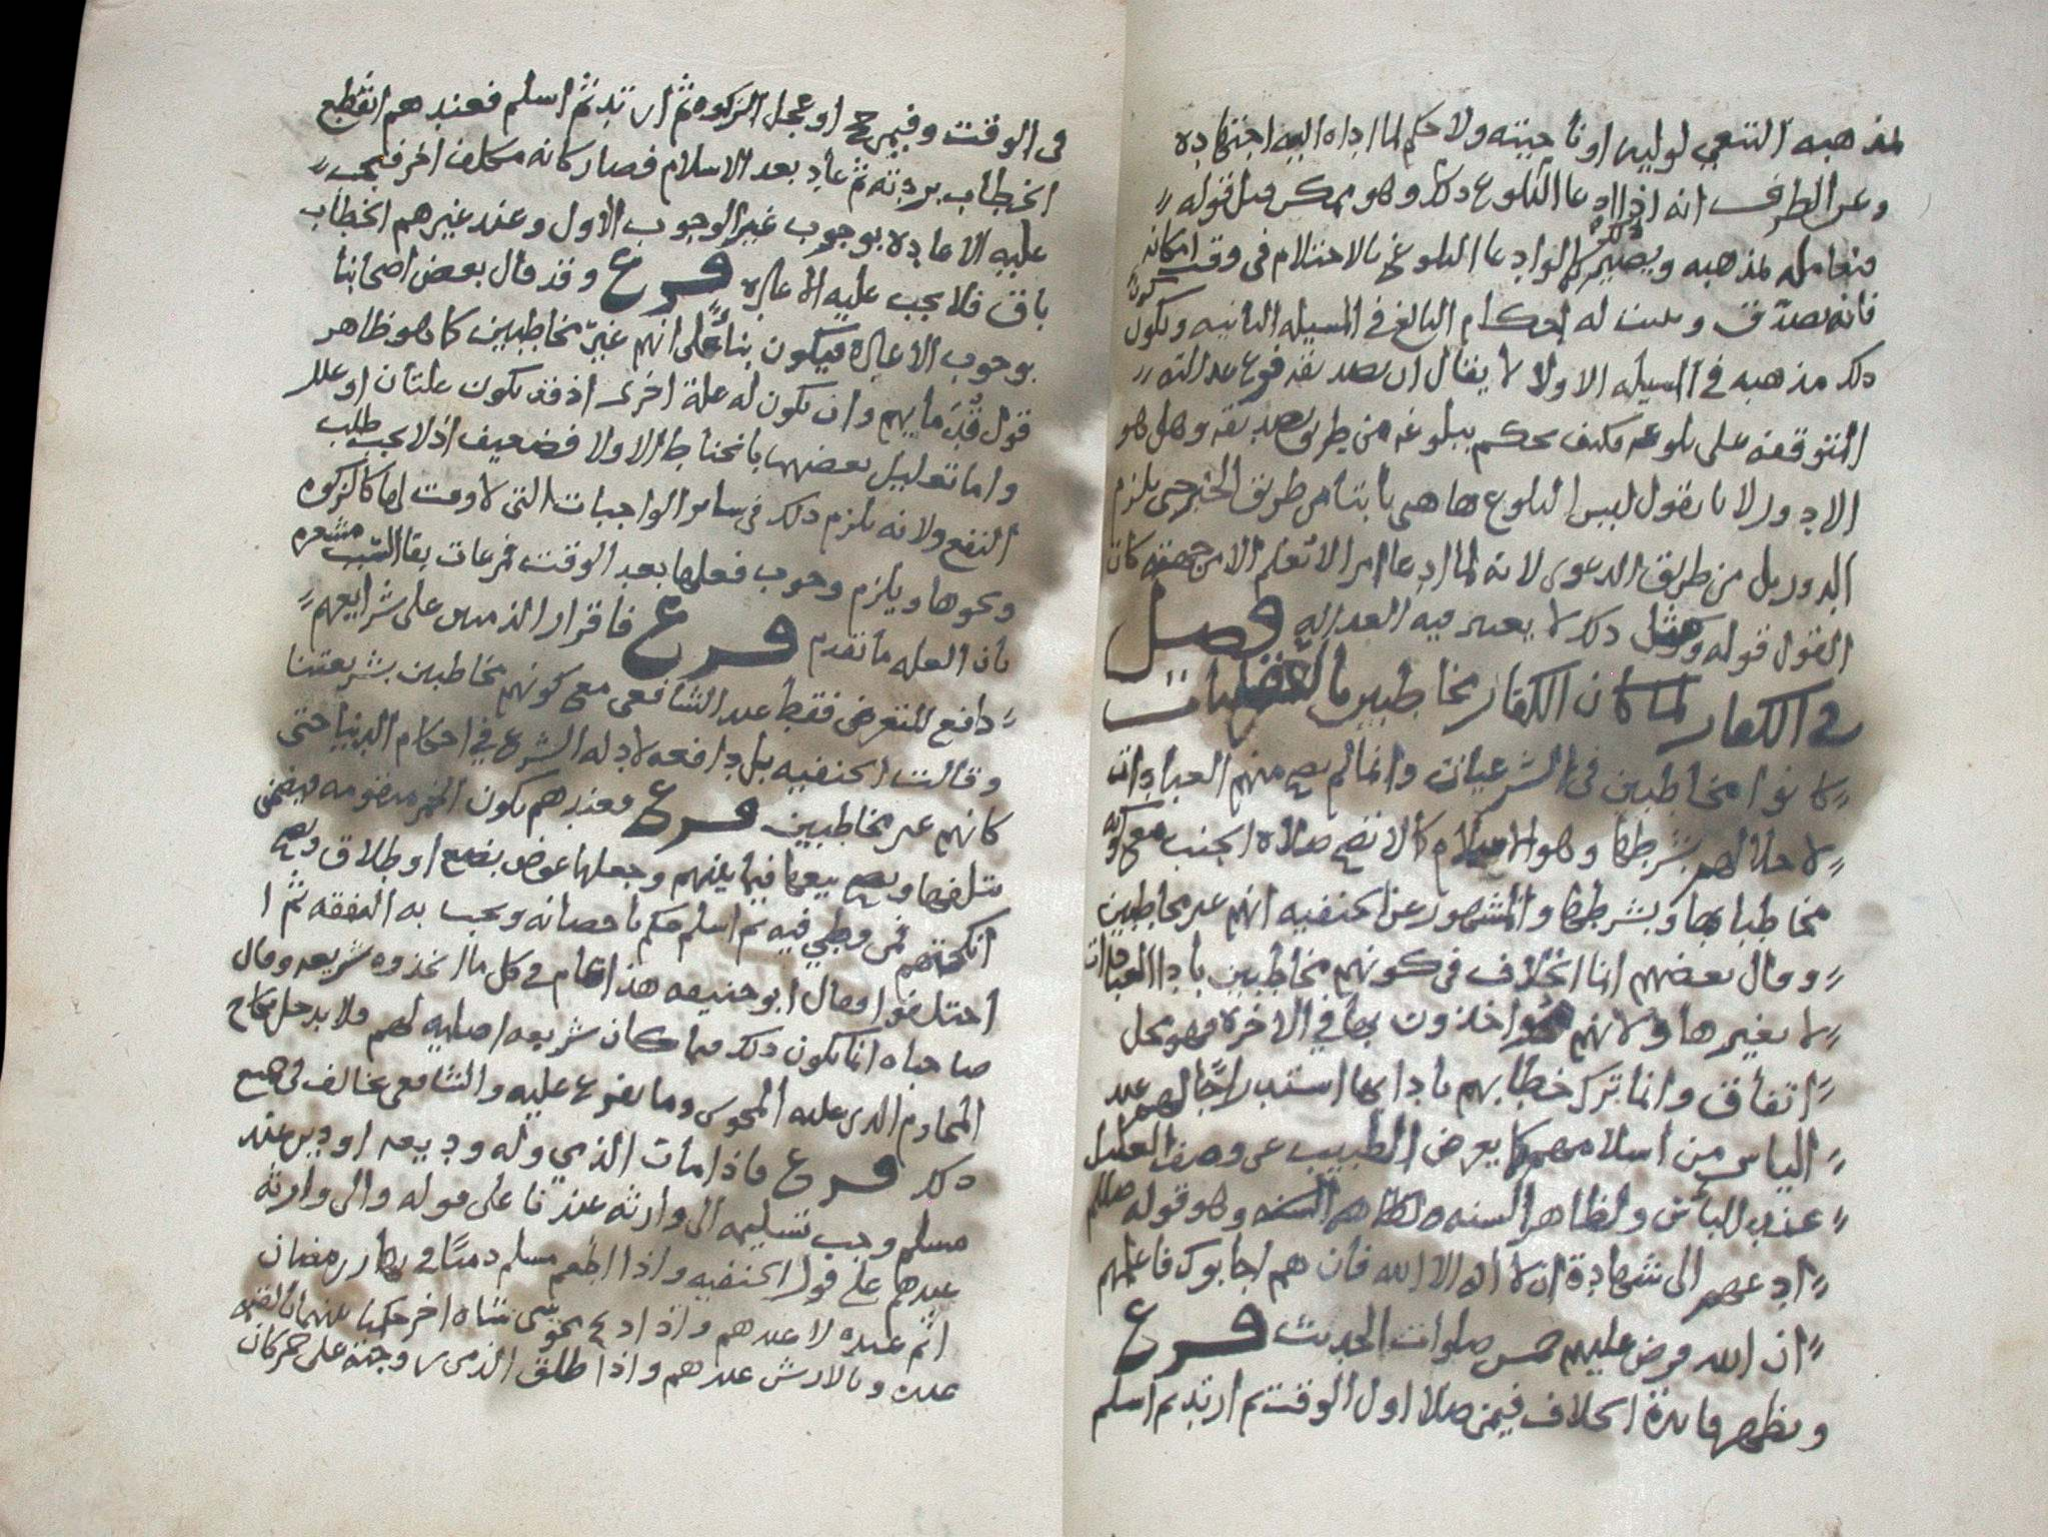 لمذهبه التعيي لوليه او ناحيته ولا حكم لما اداه اليه اجتهاده
وعن الطرف انه اذا ادعا البلوع دكر وهو ممكن قبل قوله
فتعامله لمذهبه ويصير كما لو ادعا البلوغ بالاحتلام في وقت امكانه
فانه يصدق و له احكام البالغ في المسيله الثانيه ويكون
دلك مذهبه في المسيله الاولا لا يقال ان تصديقه فرع عدالته
المتوقفه على بلوغه فكيف يحكم ببلوغه من طريق تصديقه وهل هو
الا دور لانا نقول ليس البلوع هاهنى ثابتا من طريق الخبر حتى يلزم
الدور بل من طريق الدعوى لانه لما ادعا امرا لا تعلم الا من جهته كان
القول قوله ومثل دلك لا يعتبر فيه العداله فصل
في الكفار لما كان الكفار مخاطبين بالعقليات
كانوا مخاطبين في الشرعيات وانما لم يصح منهم العبادات
لاخلالهم بشرطها وهو الاسلام كما لا تصح صلاه الجنب مع كونه
مخاطبا بها وبشرطها والمشهور عن الحنفيه انهم غير مخاطبين
وقال بعضهم انما الخلاف في كونهم مخاطبين بادا العبادات
لا بغيرها ولانهم مواخذون بها في الاخره فهو محل
اتفاق وانما ترك خطابهم بادايها استدراجا لهم عند
الياس من اسلامهم كما يعرض الطبيب عن وصف العليل
عند اليأس ولظاهر السنه وهو قوله صلعم
ادعهم الى شهادة ان لا اله الا الله فان هم اجابوك فاعلمهم
ان الله فرض عليهم خمس صلوات الحديث فرع
وتظهر فائدة الخلاف فيمن صلا اول الوقت ثم ارتد ثم اسلم
في الوقت وفيمن حج او عجل الزكوه ثم ارتد ثم اسلم فعندهم انقطع
الخطاب بردته ثم عاد بعد الاسلام فصار كانه مكلف اخر فيجب
عليه الاعاده بوجوب غير الوجوب الاول وعند غيرهم الخطاب
باق فلا يجب عليه الاعاده فرع وقد قال بعض اصحابنا
بوجوب الاعاده فيكون بناءً على انهم غير مخاطبين كما هو ظاهر
قول قدمايهم وان تكون له علة اخرى اذ قد تكون علتان او علل
واما تعليل بعضهم بانحباط الاولا فضعيف اذ لا يجب طلب
النفع ولانه يلزم دلك في ساير الواجبات التي لا وقت لها كالزكوه
ونحوها ويلزم وجوب فعلها بعد الوقت مراعات بقا السبب مشعره
بان العله ما تقدم فرع فاقرار الذميين على شرايعهم
دافع للتعرض فقط عند الشافعي مع كونهم مخاطبين بشريعتنا
وقالت الحنفيه بل دافعه لادله الشرع في احكام الدنيا حتى
كانهم غير مخاطبين فرع فعندهم يكون الخمر متقومه فيضمن
متلفها ويصح بيعها فيما بينهم وجعلها عوض بضع او طلاق ويصح
انكحتهم فمن وطي فيه ثم اسلم حكم باحصانه ويجب به النفقه ثم ا
اختلفوا فقال ابوحنيفه هذا عام في كل ما اتخذوه شريعه وقال
صاحباه انما يكون دلك فيما كان شريعه اصليه لهم فلا يدخل نكاح
المحارم الذي عليه المجوس وما تفرع عليه والشافعي مخالف في جميع
دلك فرع فاذا مات الذمي وله وديعه او دين عند
مسلم وجب تسليمه الى وارثه عندنا على قوله والى وارثه
عندهم على قول الحنفيه واذا اطعم مسلم دميًا في نهار رمضان
اثم عنده لا عندهم واذا ذبح مجوسي شاه اخر حكما بينهما بالقيمه
عنده وبالارش عندهم واذا طلق الذمي زوجته على خمر كان